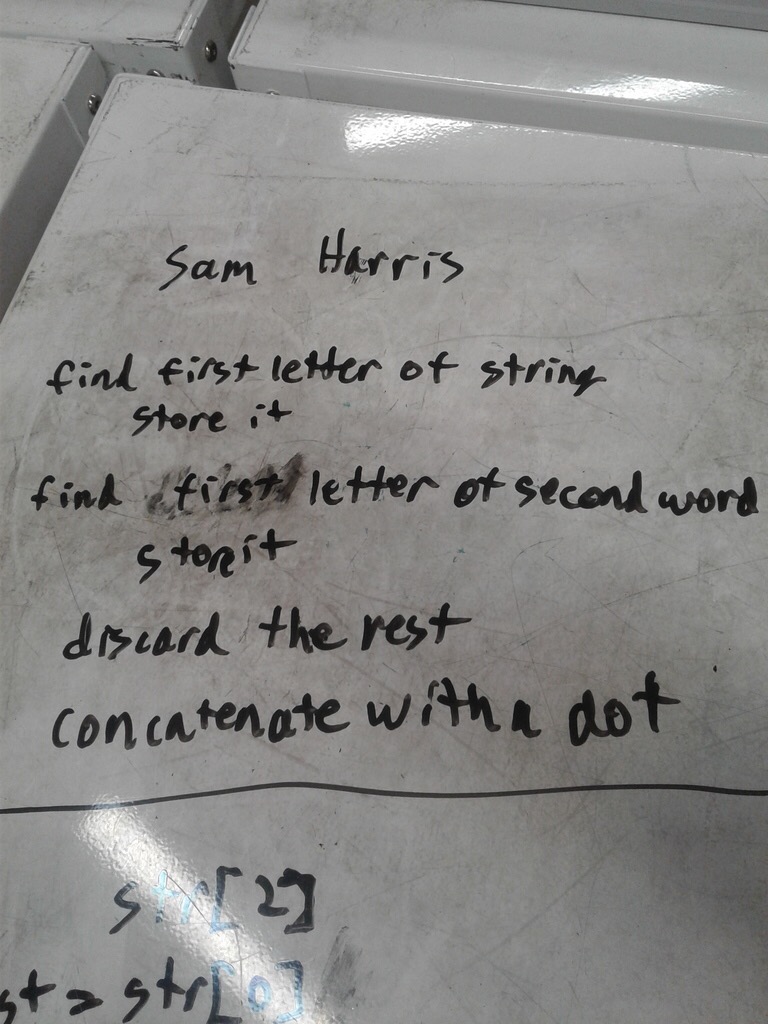 Sam Harris
find first letter of string
store it
find first letter of second word
store it
discard the rest
concatenate with a dot
str[2]
st = str[0]